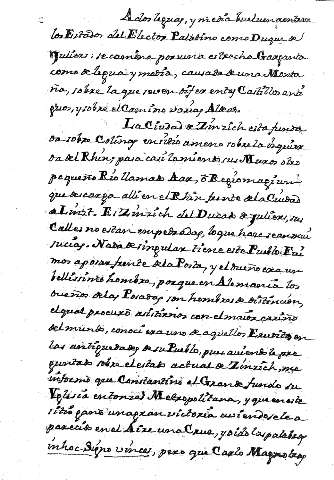 A dos leguas, y media vuelven a entrar
los Estados del Elector Palatino como Duque de
Juliers: se camina por una estrecha Garganta
como de legua y media, causada de una Monta
ña, sobre la que se ven diferentes Castillos anti
guos, y sobre el Camino varias Aldeas.
La Ciudad de Zinzich esta funda
da sobre Colinas en sitio ameno sobre la izquier
da del Rhin, pasa casi lamiendo sus Muros otro
pequeño Rio llamado Aar, ò
que descarga alli en el Rhin frente de la Ciudad
de Lintz. El Zinzich del Ducado de Juliers, sus
Calles no estan empedradas, lo que hace sean mui
sucias. Nada de singular tiene este Pueblo. Fui
mos a posar frente de la Posta, y el dueño era un
bellissimo hombre, porque en Alemania los
dueños de las Posadas son hombres de distincion,
el qual procurò asistirnos con el maior cariño
del mundo, conocí era uno de aquellos Eruditos en
las antiguedades de su Pueblo, pues aviendole pre
guntado sobre el estado actual de Zinzich, me
informò que Constantino el Grande fundò su
Yglesia entonces Metropolitana, y que en este
sitio ganò una gran victoria aviendosele a
parecido en el Aire una Cruz, y oido las palabras
in hoc signo vinces, pero que Carlo Magno